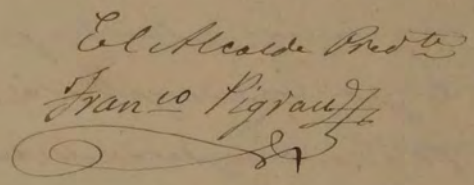 El Alcalde Pred.te
Fran.co Pigrau